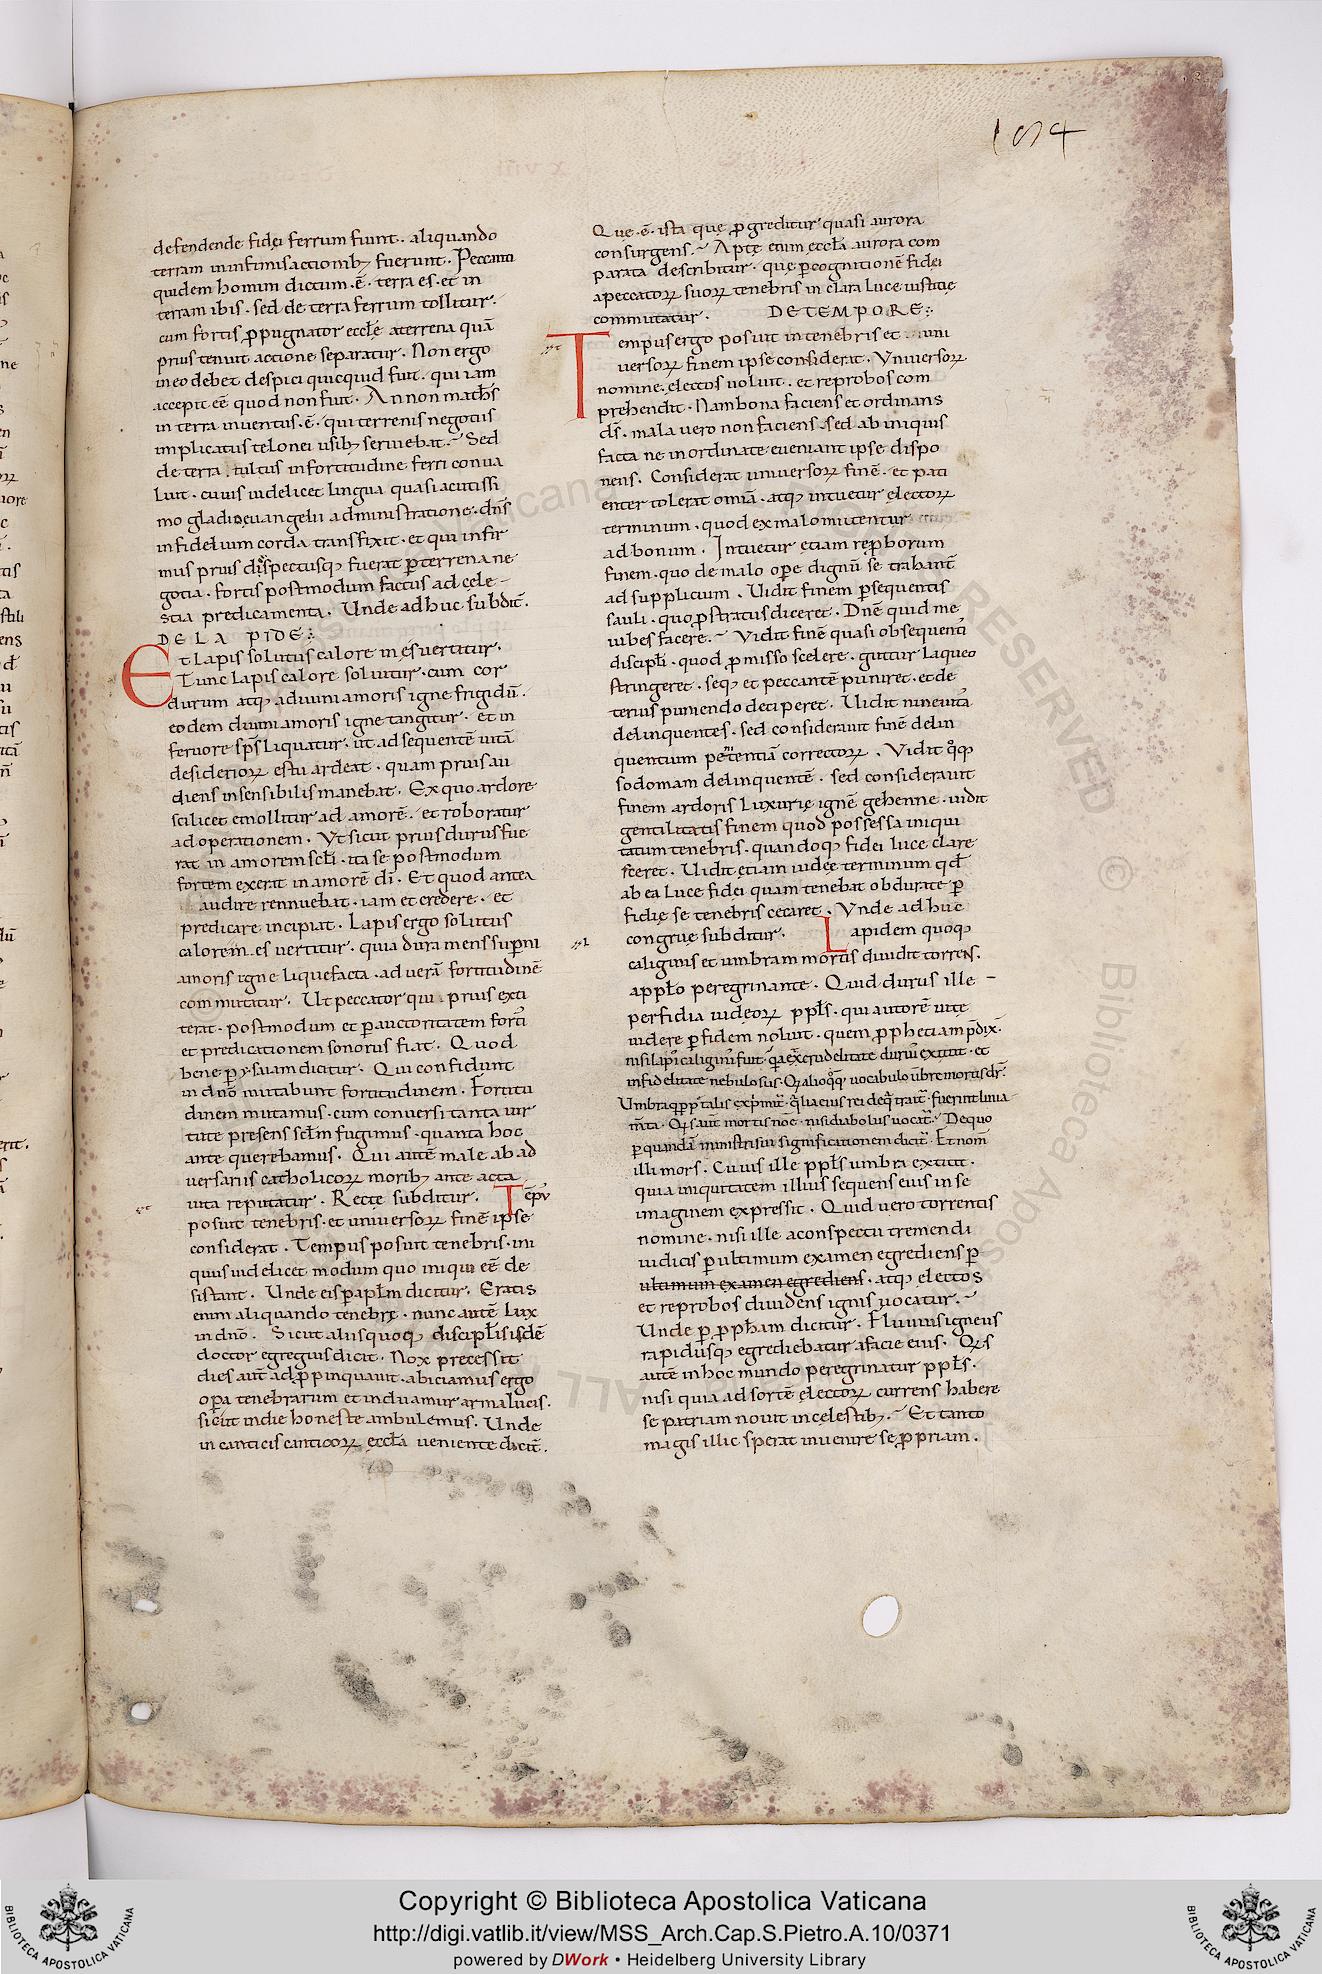 194
defendende fidei ferrum fiunt. aliquando
terram in infimis actionib; fuerunt. Peccanti
quidem homini dictum .ē. terra es. et in
terram ibis. sed de terra ferrum tollitur.
cum fortis ꝓpugnator eccłę a terrena quā
prius tenuit actione separatur. Non ergo
in eo debet despici quicquid fuit. qui iam
accepit eē quod non fuit. An non math̄s
in terra inventus .ē. qui terrenis negotiis
implicatus telonei usib; serviebat. Sed
de terra tultus in fortitudine ferri conva
luit. cuius videlicet lingua quasi acutissi
mo gladio evangelii administratione. dn̄s
infidelium corda transfixit. et qui infir
mus prius dispectusq; fuerat ꝑ terrena ne
gotia. fortis postmodum factus ad cęle
stia predicamenta. Unde adhuc subdit̄.
DE LA PIDE:
Et lapis solutus calore in ęs vertitur.
Tunc lapis calore solvitur. cum cor
durum atq; a divini amoris igne frigidū.
eodem divini amoris igne tangitur. et in
fervore sp̄s liquatur. ut ad sequentē vitā
desiderioꝝ estu ardeat. quam prius au
diens insensibilis manebat. Ex quo ardore
scilicet emollitur ad amorē. et roboratur
ad operationem. Ut sicut prius durus fue
rat in amorem scłi. ita se postmodum
fortem exerat in amorē dī. Et quod antea
audire rennuebat. iam et credere. et
predicare incipiat. Lapis ergo solutus
calorem. es vertitur. quia dura mens suꝑni
amoris igne liquefacta. ad verā fortitudinē
commutatur. Ut peccator qui prius exti
terat. postmodum et ꝑ auctoritatem forti
et predicationem sonorus fiat. Quod
bene ꝑ ysaiam dicitur. Qui confidunt
in dnō mutabunt fortitudinem. Fortitu
dinem mutamus. cum conversi tanta vir
tute presens sclm̄ fugimus. quanta hoc
ante querebamus. Qui autē male ab ad
versariis catholicoꝝ morib; ante acta
vita reputatur. Recte subditur. Tēpꝰ
posuit tenebris. et universoꝝ finē ipse
considerat. Tempus posuit tenebris. ini
quis videlicet modum quo iniqui eē de
sistant. Unde eis ꝑ apłm dicitur. Eratis
enim aliquando tenebrę. nunc autē lux
in dnō. Sicut aliis quoq; discipłis isdē
doctor egregius dicit. Nox precessit
dies aut̄ adꝓpinquavit. abiciamus ergo
oꝑa tenebrarum et induamur arma lucis.
sicut in die honeste ambulemus. Unde
in canticis canticoꝝ eccła veniente dicit̄.
Quę .ē. ista quę ꝓgreditur quasi aurora
consurgens. Apte enim eccła aurora com
parata describitur. quę ꝑ cognitionē fidei
a peccatoꝝ suoꝝ tenebris in clara luce iustitię
commutatur. DE TEMPORE:
Tempus ergo posuit in tenebris et uni
versoꝝ finem ipse considerat. Universoꝝ
nomine. electos voluit. et reprobos com
prehendit. Nam bona faciens et ordinans
dś. mala vero non faciens. sed ab iniquis
facta ne inordinate eveniant ipse dispo
nens. Considerat universoꝝ finē. et pati
enter tolerat omīa. atq; intuetur electoꝝ
terminum. quod ex malo mutentur
ad bonum. Intuetur etiam reꝓborum
finem. quo de malo oꝑe dignū se trahant̄
ad supplicium. Vidit finem ꝑsequentis
sauli. quo prostratus diceret. Dnē quid me
iubes facere. Vidit finē quasi obsequenti
discipłi. quod ꝓmisso scelere. guttur laqueo
stringeret. seq; et peccantē puniret. et de
terius puniendo deciperet. Vidit ninevitā
delinquentes. sed consideravit finē delin
quentium penitentiā correctoꝝ. Vidit qͦq;
sodomam delinquentē. sed consideravit
finem ardoris luxurię ignē gehenne. vidit
gentilitatis finem quod possessa iniqui
tatum tenebris. quandoq; fidei luce clare
sceret. Vidit etiam iudeę terminum qd̄
ab ea luce fidei quam tenebat obdurate ꝑ
fidię se tenebris cecaret. Unde adhuc
congrue subditur. Lapidem quoq;
caliginis et umbram mortis dividit torrens.
a ppło peregrinante. Quid durus ille
perfidia iudęoꝝ ppłs. qui autorē vitę
videre ꝑ fidem noluit. quem ꝓphetiam p̄dix̄.
infidelitate nebulosus.
Cuius ille ppłs umbra extitit.
quia iniquitatem illius sequens eius in se
imaginem expressit. Quid vero torrentis
nomine. nisi ille a conspectu tremendi
iudicis ꝑ ultimum examen egrediens ꝑ
ultimum examen egrediens. atq; electos
et reprobos dividens ignis vocatur.
Unde ꝑ ꝓph̄am dicitur. Fluvius igneus
rapidusq; egrediebatur a facie eius. Qis
autē in hoc mundo peregrinatur ppłs.
nisi quia ad sortē electoꝝ currens habere
se patriam novit in celestib;. Et tanto
magis illic sperat invenire se ꝓpriam.
Copyright © Biblioteca Apostolica Vaticana
http://digi.vatlib.it/view/MSS_Arch.Cap.S.Pietro.A.10/0371
powered by DWork • Heidelberg University Library
BIBLIOTECA APOSTOLICA VATICANA
BIBLIOTECA APOSTOLICA VATICANA